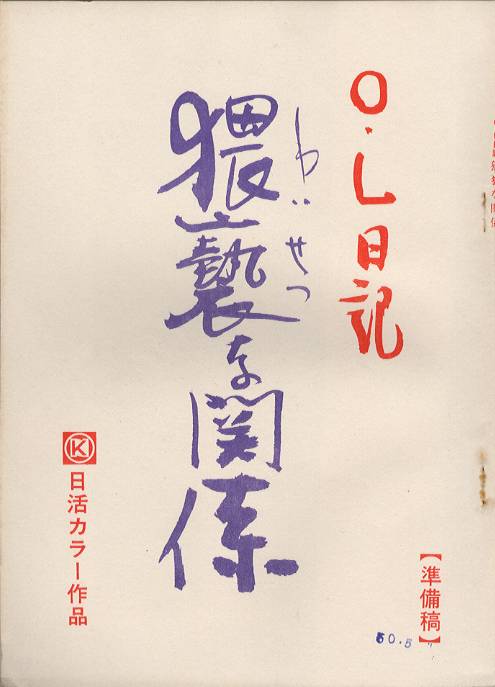 O・L日記
わいせつ
猥褻な関係
【準備稿】
50.5
K
日活カラー作品